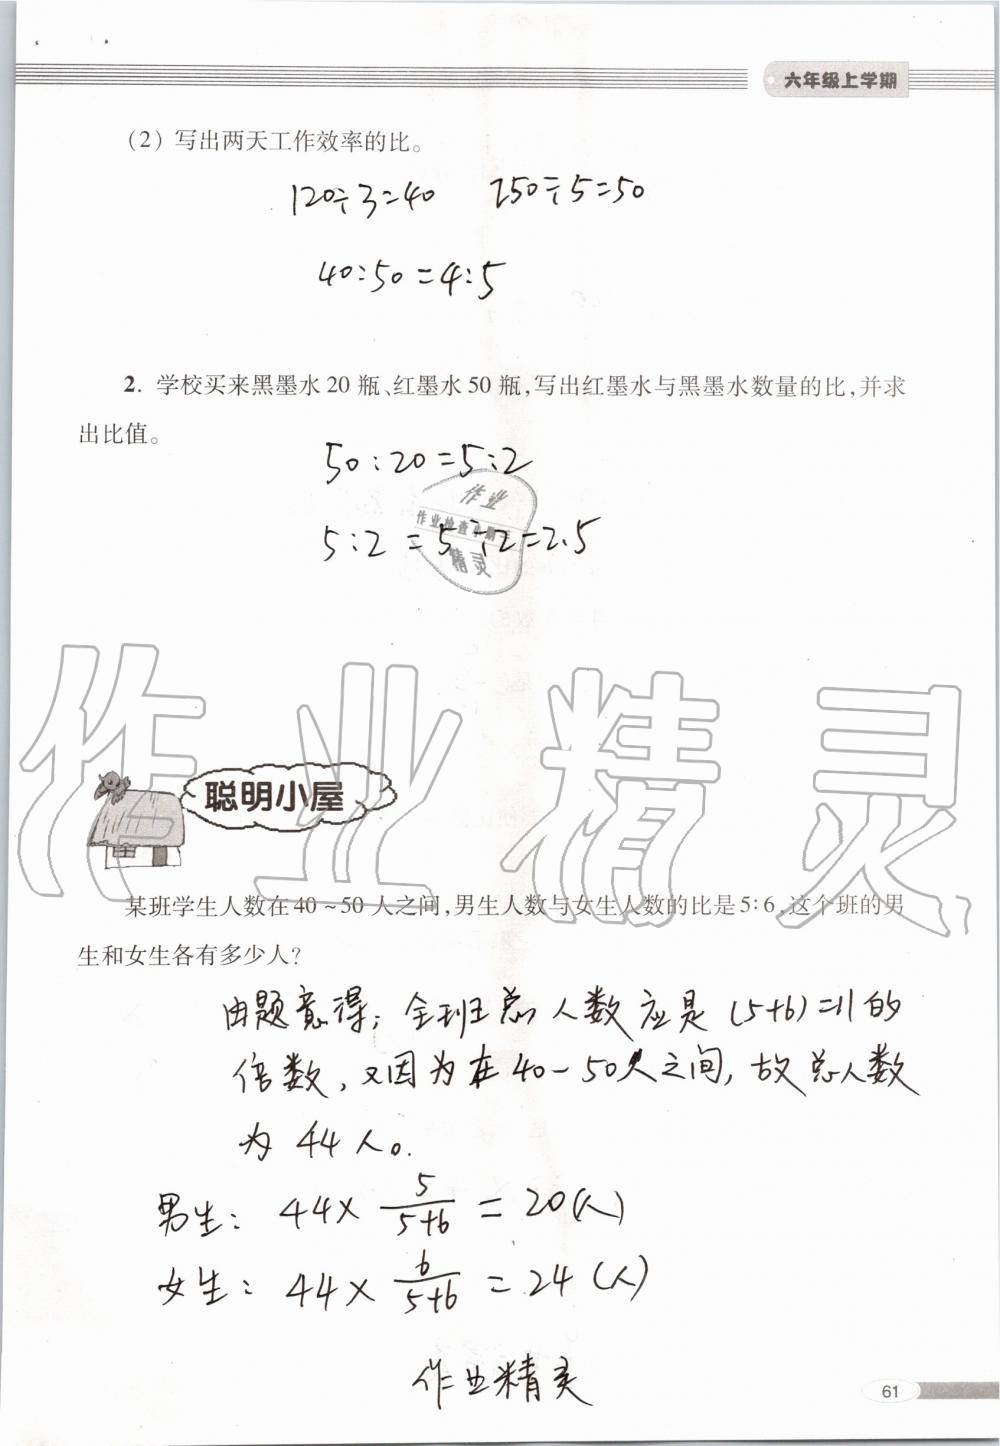 六年级上学期
(2) 写出两天工作效率的比。
120÷3=40 250÷5=50
40:50=4:5
2. 学校买来黑墨水20瓶、红墨水50瓶,写出红墨水与黑墨水数量的比,并求
出比值。
50:20=5:2
作业
作业检查小助手
5:2=5÷2=2.5
精灵
作业精灵
聪明小屋
某班学生人数在40~50人之间,男生人数与女生人数的比是5:6,这个班的男
生和女生各有多少人?
由题意得:全班总人数应是(5+6)=11的
倍数,又因为在40-50人之间,故总人数
为44人。
男生: 44×5/(5+6)=20(人)
女生: 44×6/(5+6)=24(人)
作业精灵
61